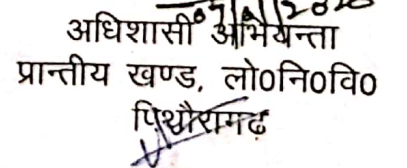 अधिशासी अभियन्ता
प्रान्तीय खण्ड, लो0नि0वि0
पिथौरागढ़